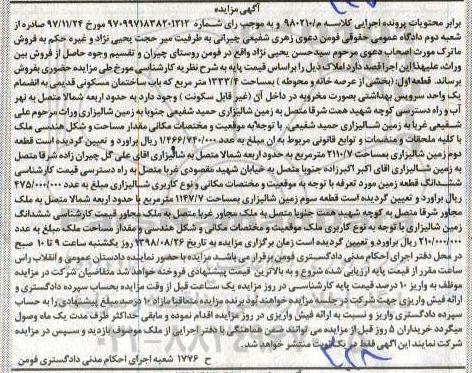 آگهی مزایده
برابر محتویات پرونده اجرایی کلاسه م/۹۸۰۲۱۰ و به موجب رای شماره ۹۷۰۹۹۷۱۸۳۸۲۰۱۲۱۲ مورخ ۹۷/۱۱/۲۴ صادره از
شعبه دوم دادگاه عمومی حقوقی فومن دعوی زهری شفیعی چیرانی به طرفیت میر حجت یحیی نژاد و غیره حکم به فروش
ماترک مورث اصحاب دعوی مرحوم سیدحسن یحیی نژاد واقع در فومن روستای چیران و تقسیم وجوه حاصل از فروش بین
وراث علیهذا این اجرا قصد دارد املاک ذیل را براساس قیمت پایه به شرح نظریه کارشناسی مورخ طی مزایده حضوری بفروش
برساند. قطعه اول: (بخشی از عرصه خانه و محوطه) بمساحت ۱۳۳۳/۴ متر مربع که باب ساختمان مسکونی قدیمی به انضمام
یک واحد سرویس بهداشتی بصورت مخروبه در داخل آن (غیر قابل سکونت) وجود دارد، به حدود اربعه شمالا متصل به نهر
آب و راه دسترسی کوچه شهید همت شرقا متصل به زمین شالیزاری حمید شفیعی جنوبا به زمین شالیزاری وراث مرحوم علی
شفیعی غربا به زمین شالیزاری حمید شفیعی با توجه به موقعیت و مختصات مکانی مقدار مساحت و شکل هندسی ملک
با کلیه ملحقات و منضمات و توابع قانونی مربوط به آن مبلغ به عدد ۱/۴۶۶/۷۴۰/۰۰۰ ریال براورد و تعیین گردیده است قطعه
دوم زمین شالیزاری بمساحت ۲۱۱۰/۷ مترمربع به حدود اربعه شمالا متصل به شالیزاری اقای علی گل چیران زاده شرقا متصل
به زمین شالیزاری اقای اکبر اکبرزاده جنوبا متصل به خیابان شهید مقصودی غربا متصل به راه دسترسی قیمت کارشناسی
ششدانگ قطعه زمین مورد تعرفه با توجه به موقعیت و مختصات مکانی و نوع کاربری شالیزاری مبلغ به عدد ۴۷۵/۰۰۰/۰۰۰
ریال براورد و تعیین گردیده است قطعه سوم زمین شالیزاری بمساحت ۱۱۴۷/۷ مترمربع با حدود اربعه شمالا متصل به ملک
مجاور شرقا متصل به کوچه شهید همت جنوبا متصل به ملک مجاور غربا متصل به ملک مجاور قیمت کارشناسی ششدانگ
زمین شالیزاری با توجه به نوع کاربری ملک موقعیت و مختصات مکانی و شکل هندسی و مقدار مساحت ملک مبلغ به عدد
۲۱۰/۰۰۰/۰۰۰ ریال براورد و تعیین گردیده است زمان برگزاری مزایده به تاریخ ۱۳۹۸/۰۸/۲۶ روز یکشنبه ساعت ۹ تا ۱۰ صبح
در محل دفتر اجرای احکام مدنی دادگستری فومن برقرار می باشد مزایده با حضور نماینده دادستان عمومی و انقلاب راس
ساعت مقرر از قیمت پایه ارزیابی شده شروع و به بالاترین قیمت پیشنهادی فروخته خواهد شد متقاضیان شرکت در مزایده
موظف به واریز ۱۰ درصد قیمت پایه کارشناسی در روز مزایده یک ساعت قبل از وقت مزایده بحساب سپرده دادگستری و
ارائه فیش واریزی جهت شرکت در جلسه مزایده خواهند بود برنده مزایده متعاقبا مازاد ۱۰ درصد مبلغ پیشنهادی را به حساب
سپرده دادگستری واریز و نسبت به ارائه فیش واریزی در روز مزایده اقدام نموده و مابقی حداکثر ظرف مدت یک ماه وصول
میگردد خریداران ۵ روز قبل از مزایده می توانند ضمن هماهنگی با دفتر اجرایی از ملک موصوف بازدید و سپس در مزایده
شرکت نمایند این آگهی فقط در یک نوبت منتشر خواهد شد.
ح ۱۷۷۶ شعبه اجرای احکام مدنی دادگستری فومن